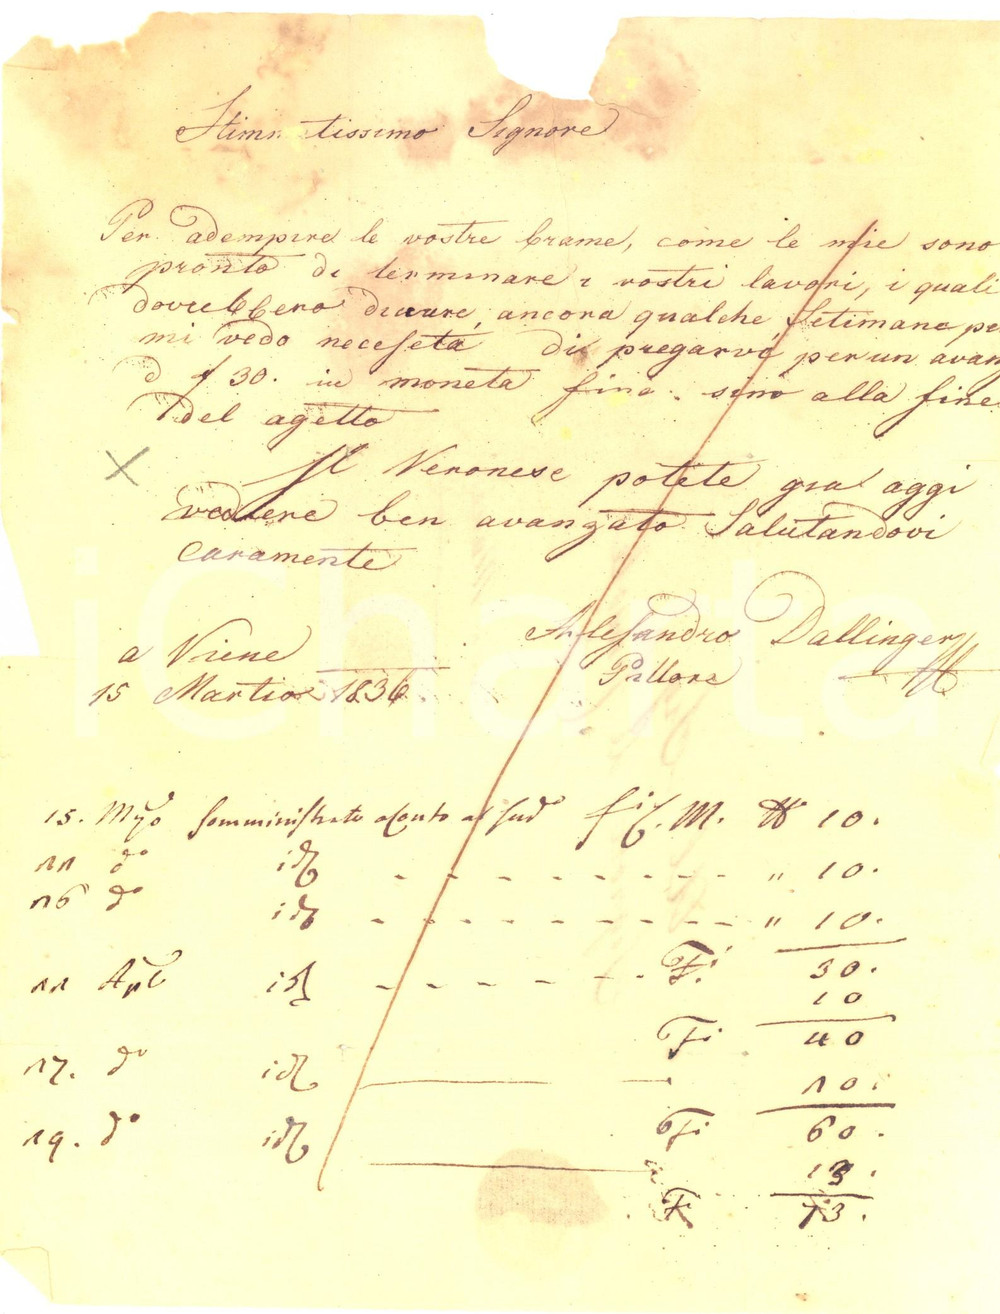 Stim tissimo Signore
Per adempire le vostre brame, come le mie sono
pronto di terminare i vostri lavori, i quali
dovrebbero durare ancora qualche Setimane pe
mi vedo necesetà di pregarvi per un avan
d f 30. in moneta fina. sino alla fine
del agetto
Il Veronese potete gia aggi
vedere ben avanzato Salutandovi
caramente
Alesandro Dallinger
Pittore
a Viene
15 Martio 1836.
15. Mzo somministrato aconto al sudo M. 10.
11 do id - - - - - - - - - - " 10.
16 do id - - - - - - - - - - " 10.
Fi 30.
11 Apl id - - - - - - - 10
Fi 40
17. do id 10.
Fi 60.
19. do id 13.
F 73.
iCharta